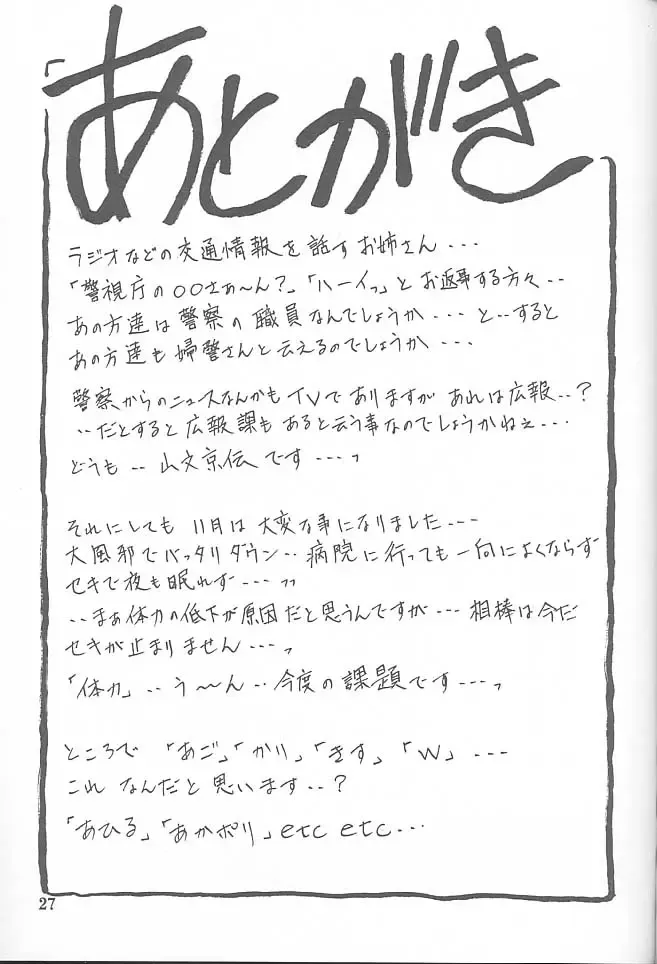 「あとがき
ラジオなどの交通情報を話すお姉さん...
「警視庁の○○さぁ〜ん?」「ハーイっ」とお返事する方々..
あの方達は警察の職員なんでしょうか...と..すると
あの方達も婦警さんと云えるのでしょうか...
警察からのニュースなんかもTVでありますがあれは広報..?
..だとすると広報課もあると云う事なのでしょうかねぇ...
どうも..山文京伝です...っ
それにしても11月は大変な事になりました...
大風邪でバッタリダウン..病院に行っても一向によくならず
セキで夜も眠れず...っっ
..まぁ体力の低下が原因だと思うんですが...相棒は今だ
セキが止まりません...っ
「体力」..う〜〜ん..今度の課題です...っ
ところで「あご」「かり」「きす」「W」...
これなんだと思います..?
「あひる」「あかポリ」etc etc...
27